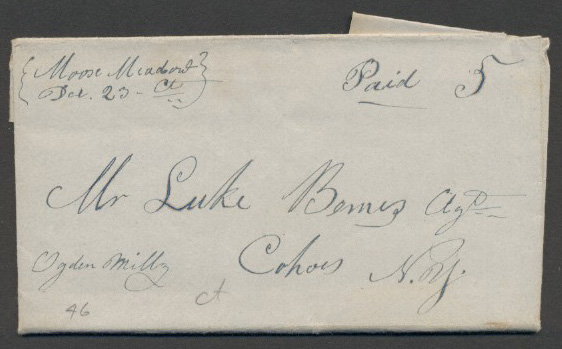 Moose Meadow
Dec. 23 - Ct
Paid 5
Mr Luke Bemis Agt
Ogden Mills
Cohoes N.Y.
46 ct